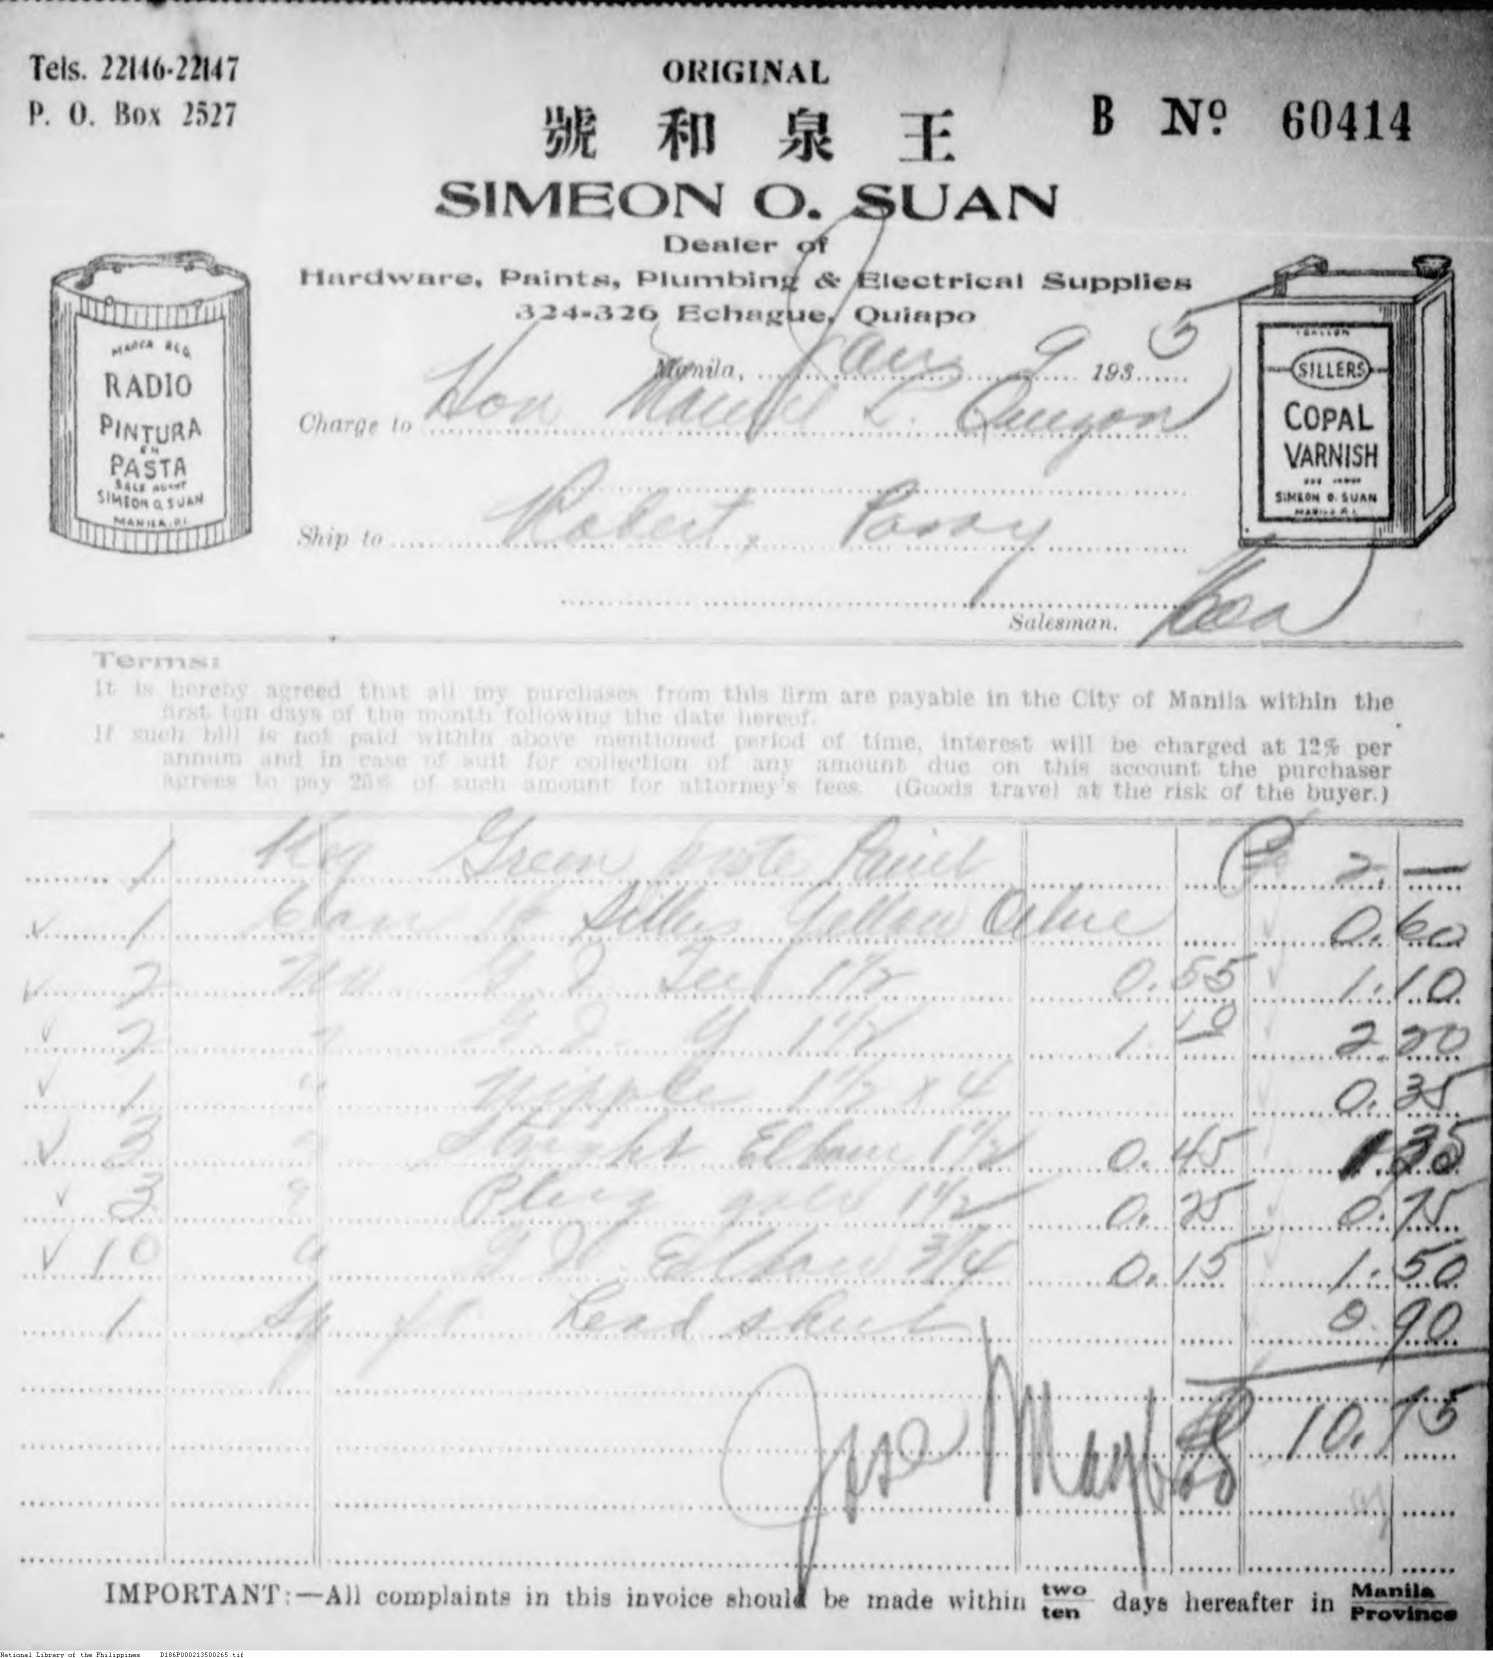 Tels. 22146-22147
P. O. Box 2527
ORIGINAL
B Nº 60414
號 和 泉 王
SIMEON O. SUAN
Dealer of
Hardware, Paints, Plumbing & Electrical Supplies
324-326 Echague, Quiapo
Manila, Jan 9 1935
Charge to Hon Manuel L. Quezon
Ship to Robert,
Salesman.
MARCA REG.
RADIO
PINTURA
EN
PASTA
SALE AGENT
SIMEON O. SUAN
MANILA, P.I.
1 GALLON
SILLERS
COPAL
VARNISH
SIMEON O. SUAN
MANILA P. I.
Terms:
It is hereby agreed that all my purchases from this firm are payable in the City of Manila within the
first ten days of the month following the date hereof.
If such bill is not paid within above mentioned period of time, interest will be charged at 12% per
annum and in case of suit for collection of any amount due on this account the purchaser
agrees to pay 25% of such amount for attorney's fees. (Goods travel at the risk of the buyer.)
1 Keg Green Paste Paint ₱ 2. —
1 Yellow 0.60
2 G. I. Tee 1½ 0.55 1.10
2 " G. I. Y 1½ 1.10 2.20
1 " Nipple 1½ x 4 0.35
3 " Straight Elbow 1½ 0.45 1.35
3 " Plug 1½ 0.25 0.75
10 " G. I. Elbow 3/4 0.15 1.50
1 Sq ft. Lead sheet 0.90
Jose 10.75
IMPORTANT:—All complaints in this invoice should be made within two/ten days hereafter in Manila/Province
National Library of the Philippines D186P000213500265.tif